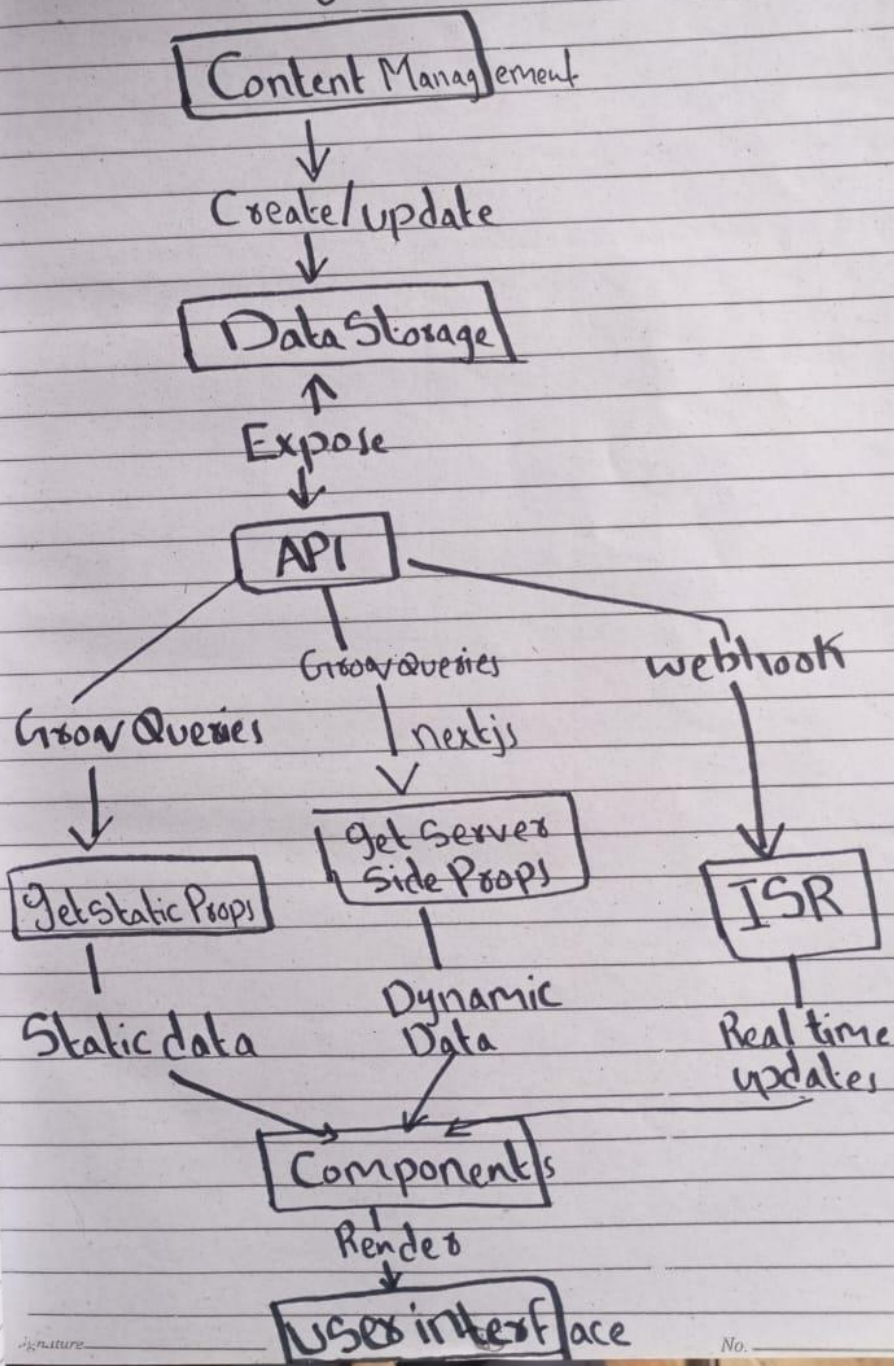 Content Management
Create/update
Data Storage
Expose
API
GROQ Queries
webhook
GROQ Queries
nextjs
getServer
Side Props
getStaticProps
ISR
Dynamic
Data
Static data
Real time
updates
Components
Render
user interface
ignature
No.